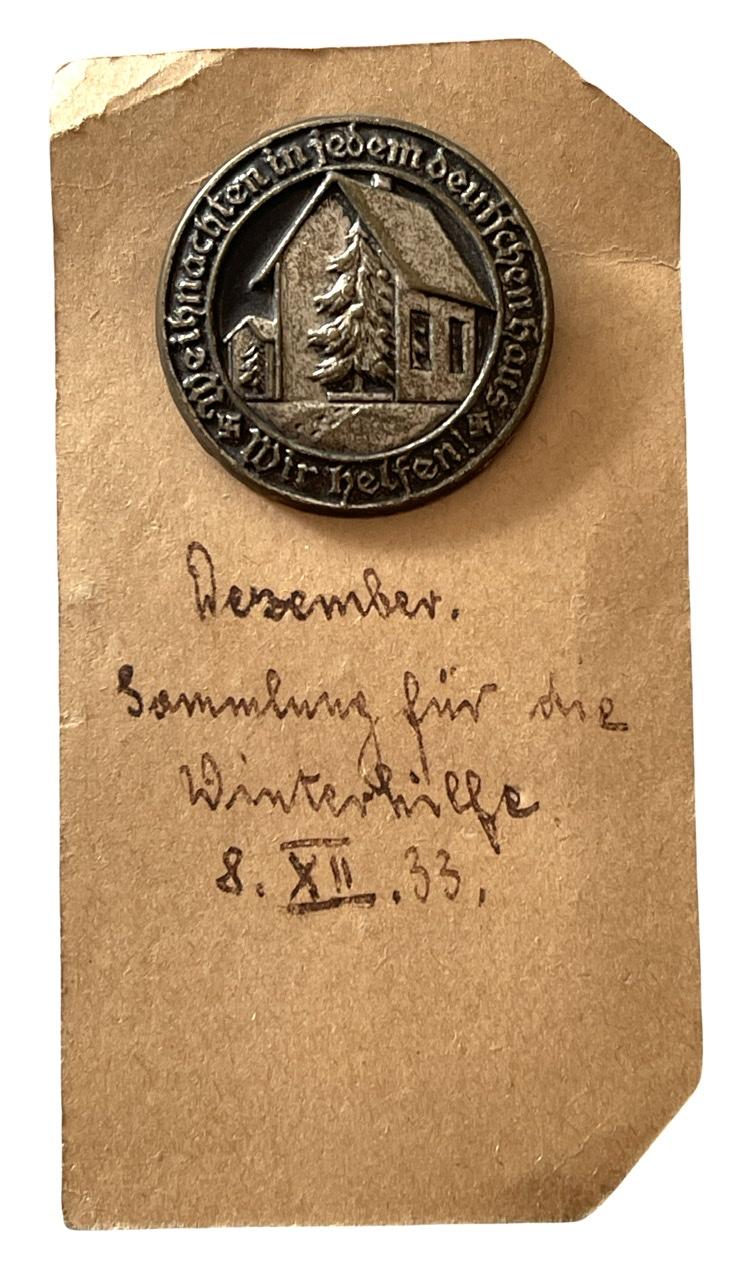 Weihnachten in jedem deutschen Haus
Wir helfen!
Dezember.
Sammlung für die
Winterhilfe
8. XII. 33.